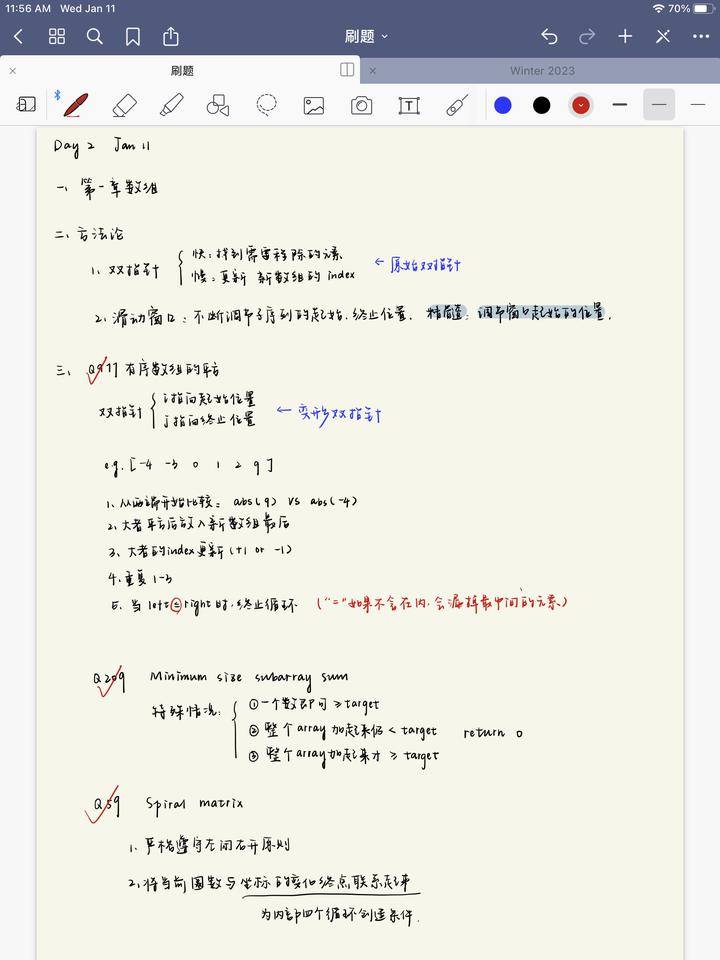 11:56 AM Wed Jan 11
70%
刷题
刷题
Winter 2023
Day 2 Jan 11
一、第一章数组
二、方法论
1、双指针
快：找到需要移除的元素
慢：更新 新数组的 index
← 原始双指针
2、滑动窗口：不断调节子序列的起始、终止位置。 精髓：调节窗口起始的位置。
三、 Q977 有序数组的平方
双指针
i指向起始位置
j指向终止位置
← 变形双指针
e.g. [-4 -3 0 1 2 9]
1、从两端开始比较： abs(9) vs abs(-4)
2、大者平方后放入新数组最后
3、大者的index更新 (+1 or -1)
4、重复 1-3
5、当 left = right 时，终止循环 ("=" 如果不含在内，会漏掉最中间的元素)
Q209 Minimum size subarray sum
特殊情况：
① 一个数即可 ≥ target
② 整个 array 加起来仍 < target return 0
③ 整个 array 加起来才 ≥ target
Q59 Spiral matrix
1、严格遵守左闭右开原则
2、将当前圈数与坐标的变化终点联系起来
为内部四个循环创造条件.